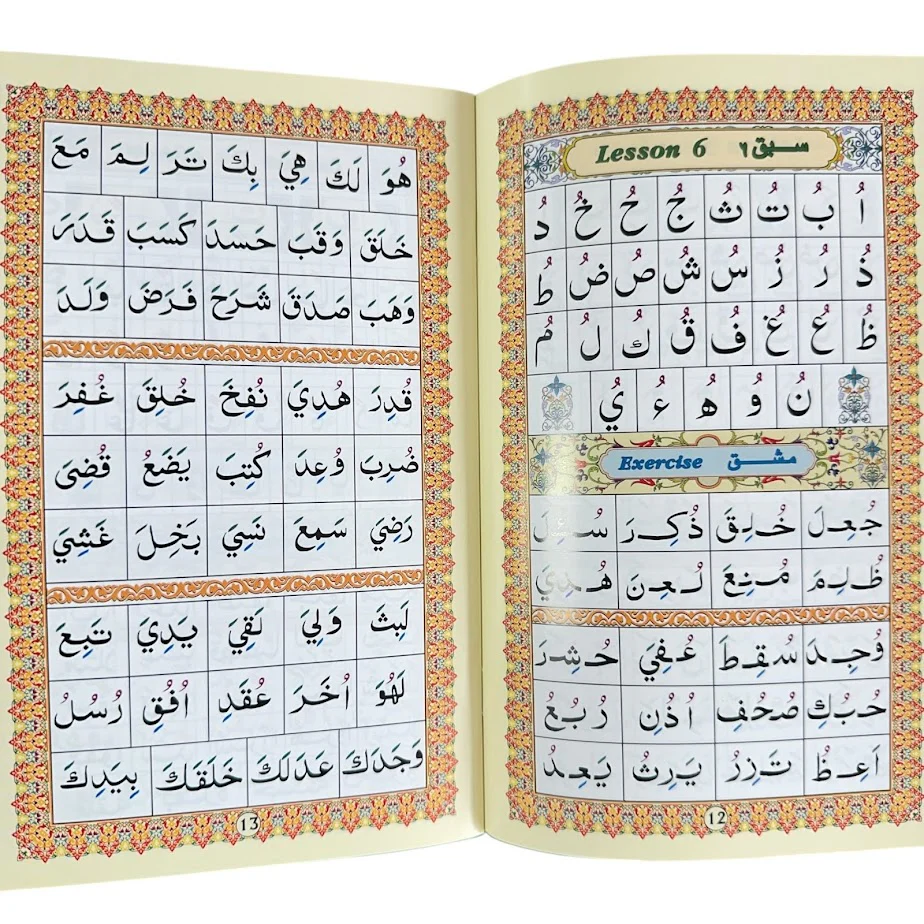 Lesson 6 سبق ٦
اُ بُ تُ ثُ جُ حُ خُ دُ
ذُ رُ زُ سُ شُ صُ ضُ طُ
ظُ عُ غُ فُ قُ كُ لُ مُ
نُ وُ هُ ءُ يُ
Exercise مشق
جُعِلَ خُلِقَ ذُكِرَ سُئِلَ
ظُلِمَ مُنِعَ لُعِنَ هُدِيَ
وُجِدَ سُقِطَ عُفِيَ حُشِرَ
حُبُكِ صُحُفِ اُذُنِ رُبُعُ
اَعِظُ تَزِرُ يَرِثُ يَعِدُ
12
هُوَ لَكَ هِيَ بِكَ تَرَ لِمَ مَعَ
خَلَقَ وَقَبَ حَسَدَ كَسَبَ قَدَرَ
وَهَبَ صَدَقَ شَرَحَ فَرَضَ وَلَدَ
قُدِرَ هُدِيَ نُفِخَ خُلِقَ غُفِرَ
ضُرِبَ وُعِدَ كُتِبَ يَضَعُ قُضِيَ
رَضِيَ سَمِعَ نَسِيَ بَخِلَ غَشِيَ
لَبِثَ وَلِيَ لَقِيَ يَدِيَ تَبِعَ
لَهُوَ اُخَرَ عُقَدِ اُفُقِ رُسُلُ
وَجَدَكَ عَدَلَكَ خَلَقَكَ بِيَدِكَ
13